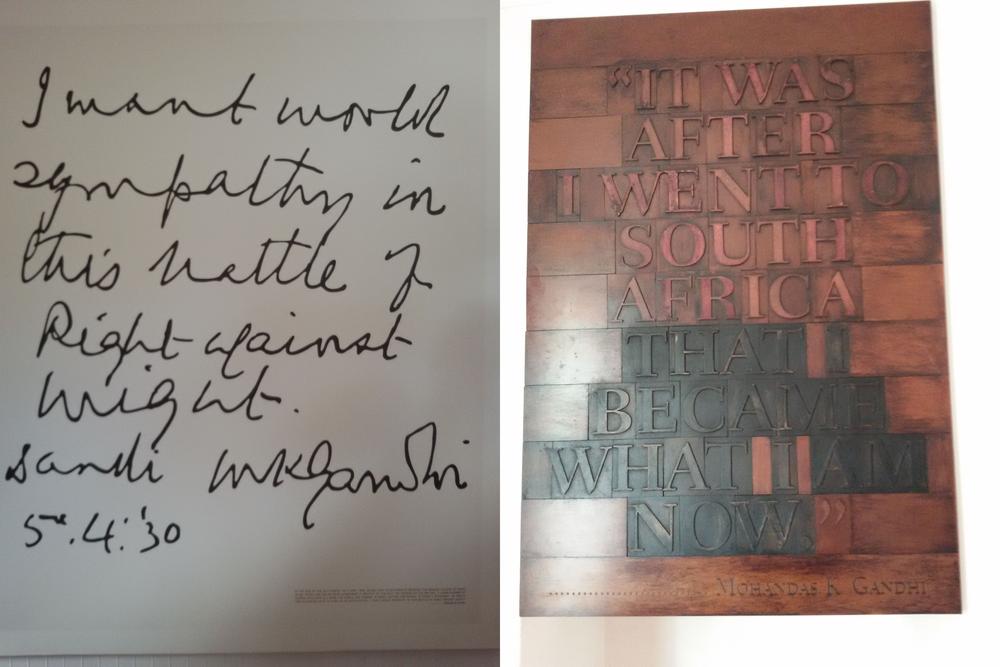 I want world
sympathy in
this battle of
Right against
might.
Dandi MKGandhi
5.4.'30
“IT WAS
AFTER
I WENT TO
SOUTH
AFRICA
THAT I
BECAME
WHAT I AM
NOW.”
MOHANDAS K GANDHI